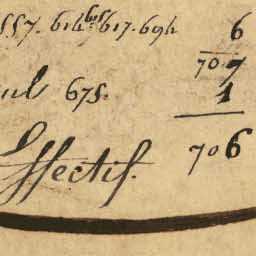 557. 614 bis 617. 694 6
70.7
nul 675. 1
Effectif. 706